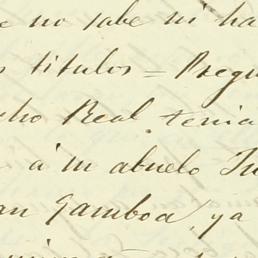 no sabe ni ha
titulos = Pregu
cho Real tenia
á su abuelo Ju
an Gamboa, ya